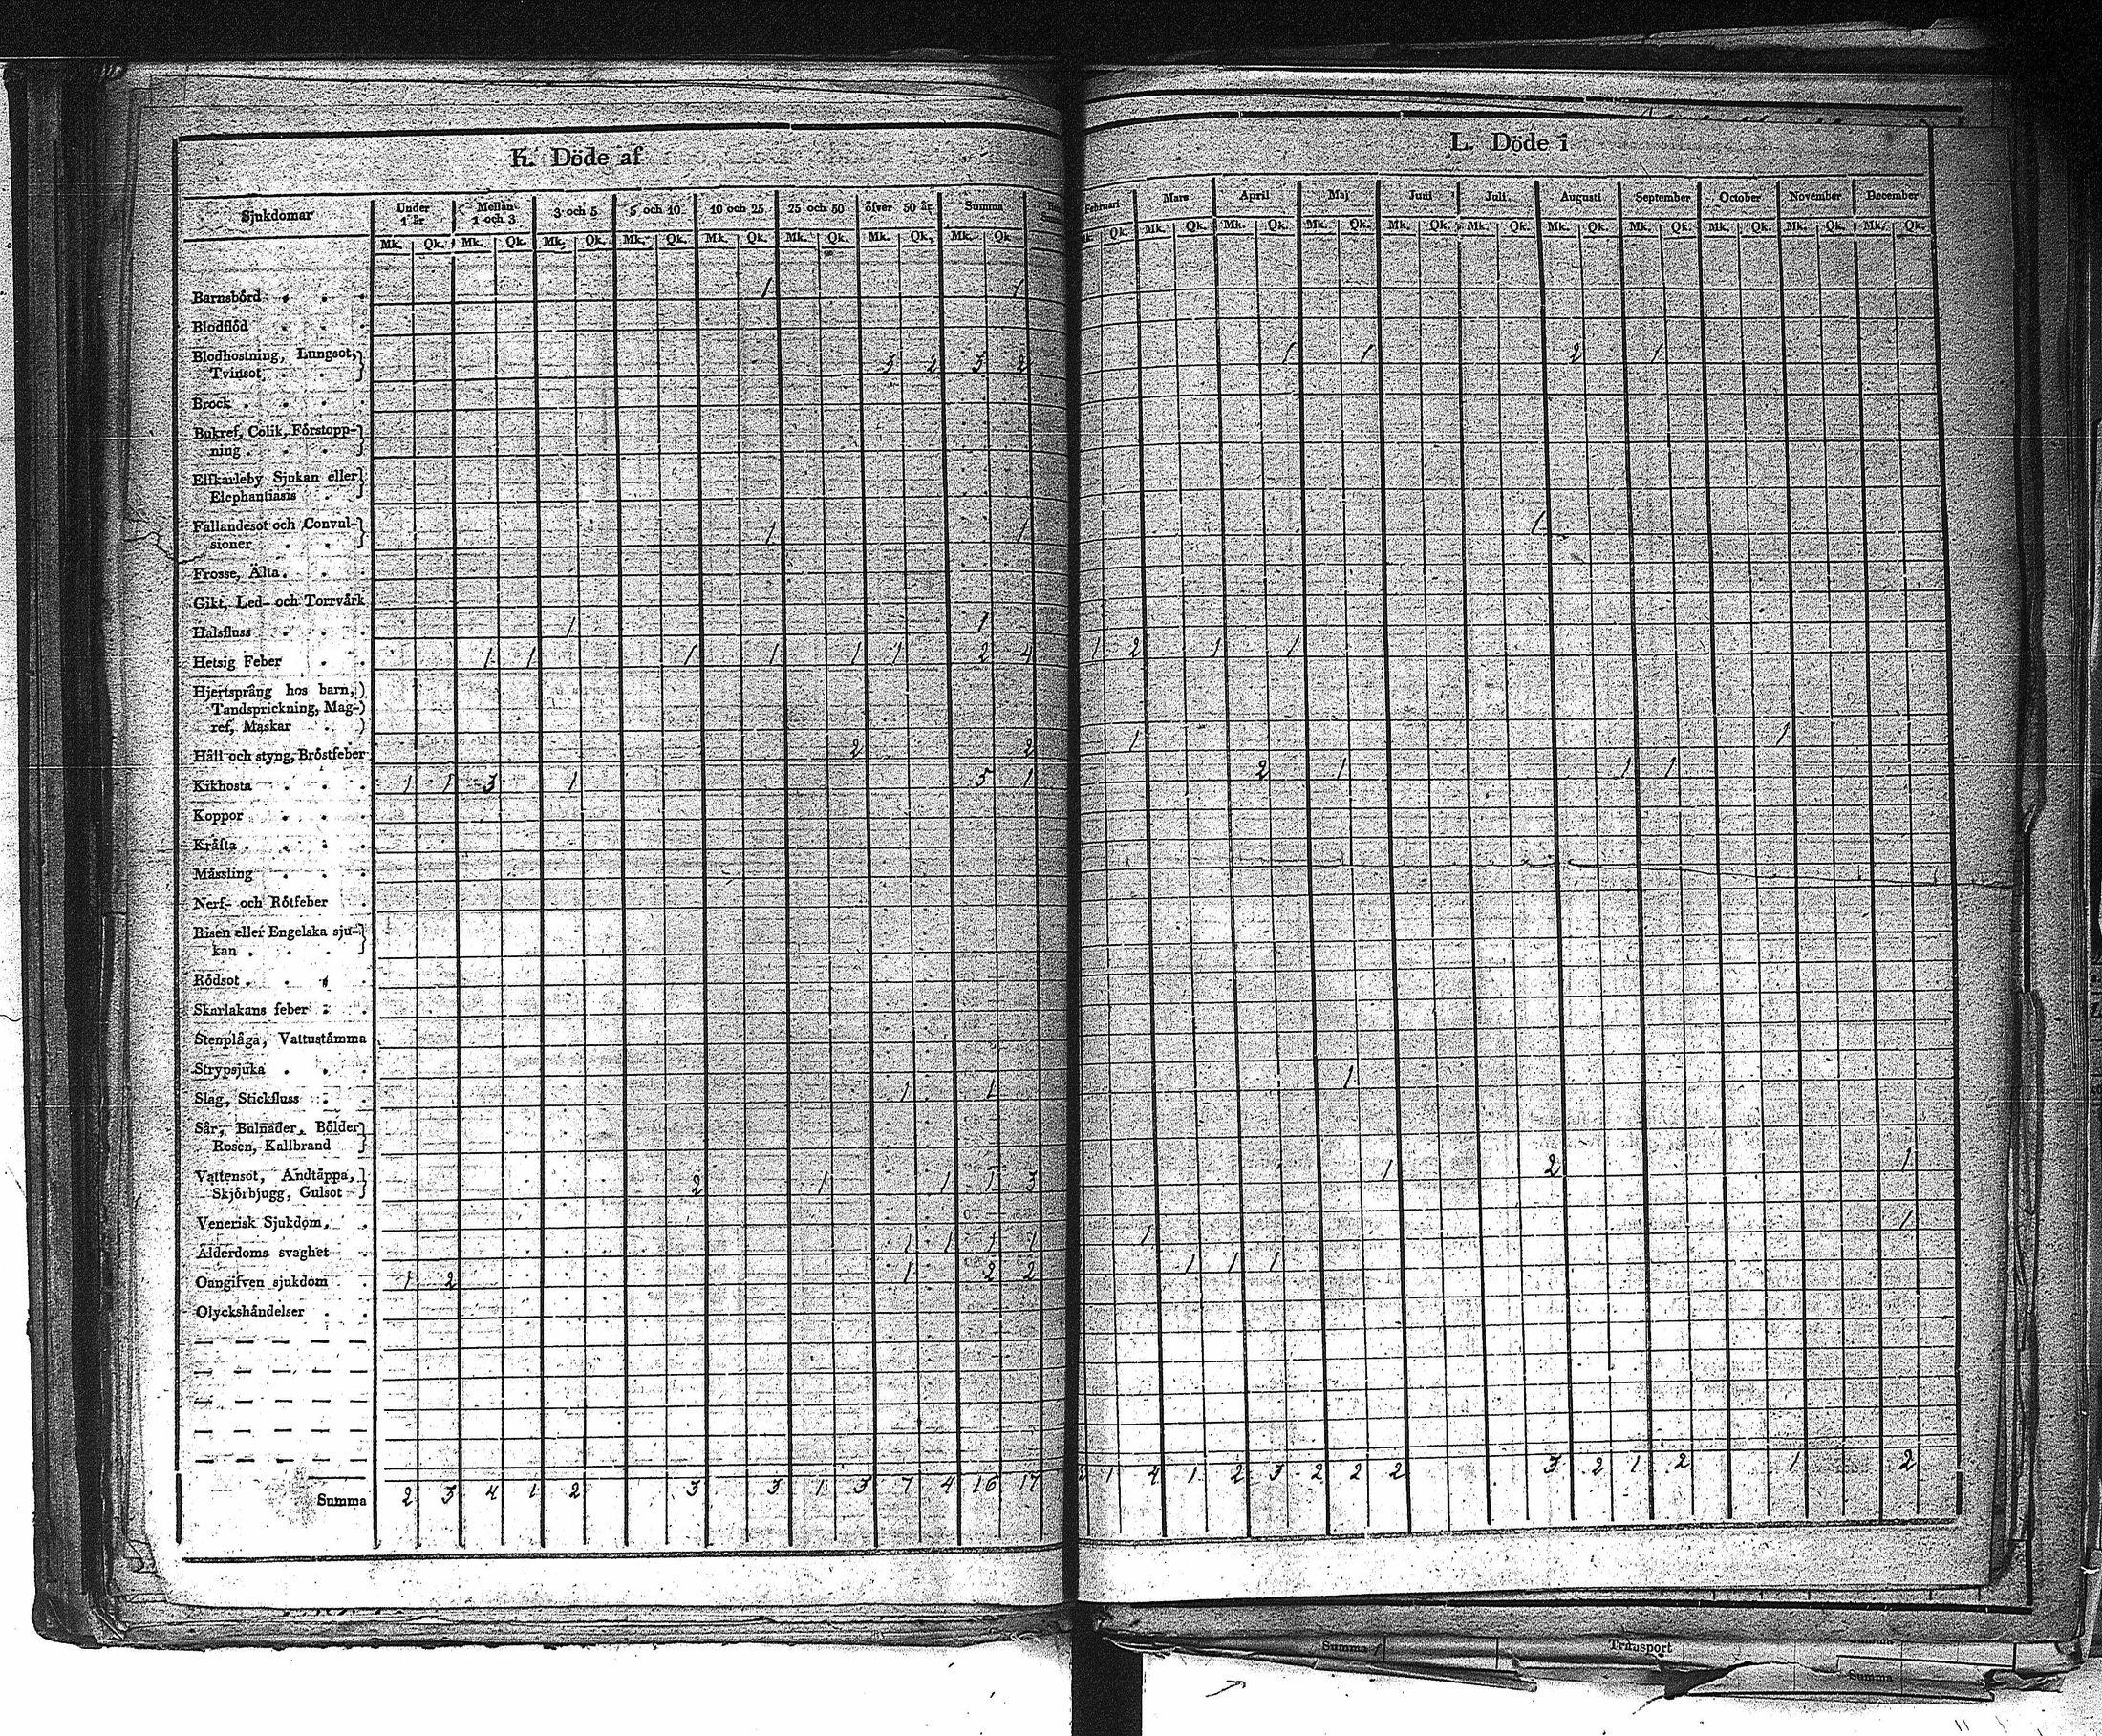 K. Döde af
Sjukdomar Under 1 år Mellan 1 och 3 3 och 5 5 och 10 10 och 25 25 och 50 öfver 50 år Summa
Mk. Qk. Mk. Qk. Mk. Qk. Mk. Qk. Mk. Qk. Mk. Qk. Mk. Qk. Mk. Qk.
Barnsbörd 1 1
Blodflöd
Blodhostning, Lungsot,
Tvinsot 3 2 3 2
Brock
Bukref, Colik, Förstopp-
ning
Elfkarleby Sjukan eller
Elephantiasis
Fallandesot och Convul-
sioner 1 1
Frosse, Älta
Gikt, Led- och Torrvärk
Halsfluss 1 1
Hetsig Feber 1 1 1 1 1 1 2 4
Hjertsprång hos barn,
Tandsprickning, Mag-
ref, Maskar
Håll och styng, Bröstfeber 2 2
Kikhosta 1 1 3 1 5 1
Koppor
Kräfta
Mässling
Nerf- och Rötfeber
Risen eller Engelska sju-
kan
Rödsot
Skarlakans feber
Stenplåga, Vattustämma
Strypsjuka
Slag, Stickfluss 1 1
Sår, Bulnader, Bölder
Rosen, Kallbrand
Vattensot, Andtäppa,
Skjörbjugg, Gulsot 2 1 1 1 3
Venerisk Sjukdom
Ålderdoms svaghet 1 1 1 1
Oangifven sjukdom 1 2 1 2 2
Olyckshändelser
Summa 2 3 4 1 2 3 3 1 3 7 4 16 17
L. Döde i
Februari Mars April Maj Juni Juli Augusti September October November December
Qk. Mk. Qk. Mk. Qk. Mk. Qk. Mk. Qk. Mk. Qk. Mk. Qk. Mk. Qk. Mk. Qk. Mk. Qk. Mk. Qk.
1 1 2 1
1
1 2 1 1
1 1
2 1 1 1
1
1 2 1
1 1
1 1 1
1 4 1 2 3 2 2 2 3 2 1 2 1 2
Summa Transport
Summa